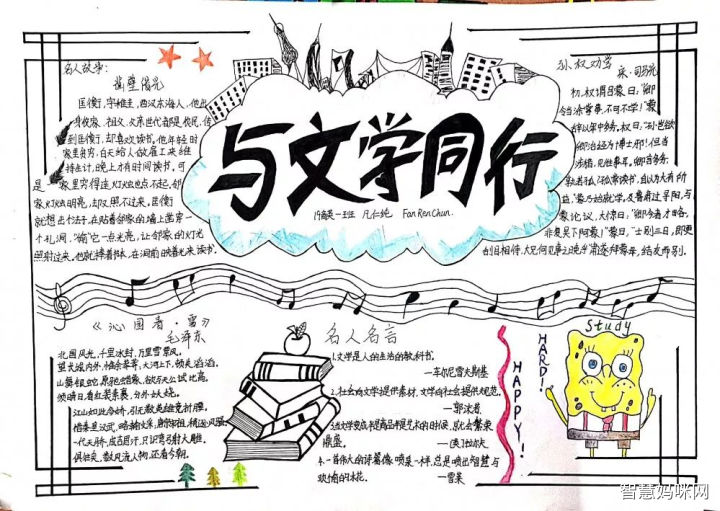 与文学同行
19商英一班 凡仁纯 Fan Ren Chun.
名人故事:
凿壁借光
匡衡,字稚圭,西汉东海人,他出
身农家,祖父、父亲世代都是农民,传
到匡衡,却喜欢读书,他年轻时
家里贫穷,白天给人做雇工来维
持生计,晚上才有时间读书,可
是 家里穷得连灯烛也点不起,邻
家灯烛明亮,却又照不过来,匡衡
就想出个法子,在贴着邻家的墙上凿穿一
个孔洞,“偷”它一点光亮,让邻家的灯光
照射过来,他就捧着书本,在洞前映着光来读书。
孙权劝学
宋·司马光
初,权谓吕蒙曰:“卿
今当涂掌事,不可不学!”蒙
辞以军中多务,权曰,“孤岂欲
卿治经为博士邪!但当
涉猎,见往事耳,卿言多务,
孰若孤?孤常读书,自以为大有所
益,”蒙乃始就学,及鲁肃过寻阳,与
蒙论议,大惊曰:“卿今者才略,
非复吴下阿蒙!”蒙曰,“士别三日,即更
刮目相待,大兄何见事之晚乎!”肃遂拜蒙母,结友而别。
《沁园春·雪》
毛泽东
北国风光,千里冰封,万里雪飘。
望长城内外,惟余莽莽,大河上下,顿失滔滔。
山舞银蛇,原驰蜡象,欲与天公试比高。
须晴日,看红装素裹,分外妖娆。
江山如此多娇,引无数英雄竞折腰。
惜秦皇汉武,略输文采,唐宗宋祖,稍逊风骚。
一代天骄,成吉思汗,只识弯弓射大雕。
俱往矣,数风流人物,还看今朝。
名人名言
1.文学是人的生活的教科书.
—车尔尼雪夫斯基
2.社会向文学提供素材,文学向社会提供规范。
—郭沫若
鼎盛。
4.一首伟大的诗篇像喷泉一样,总是喷出智慧与
欢愉的水花.
—雪莱
HAPPY!
HARD!
Study
智慧妈咪网